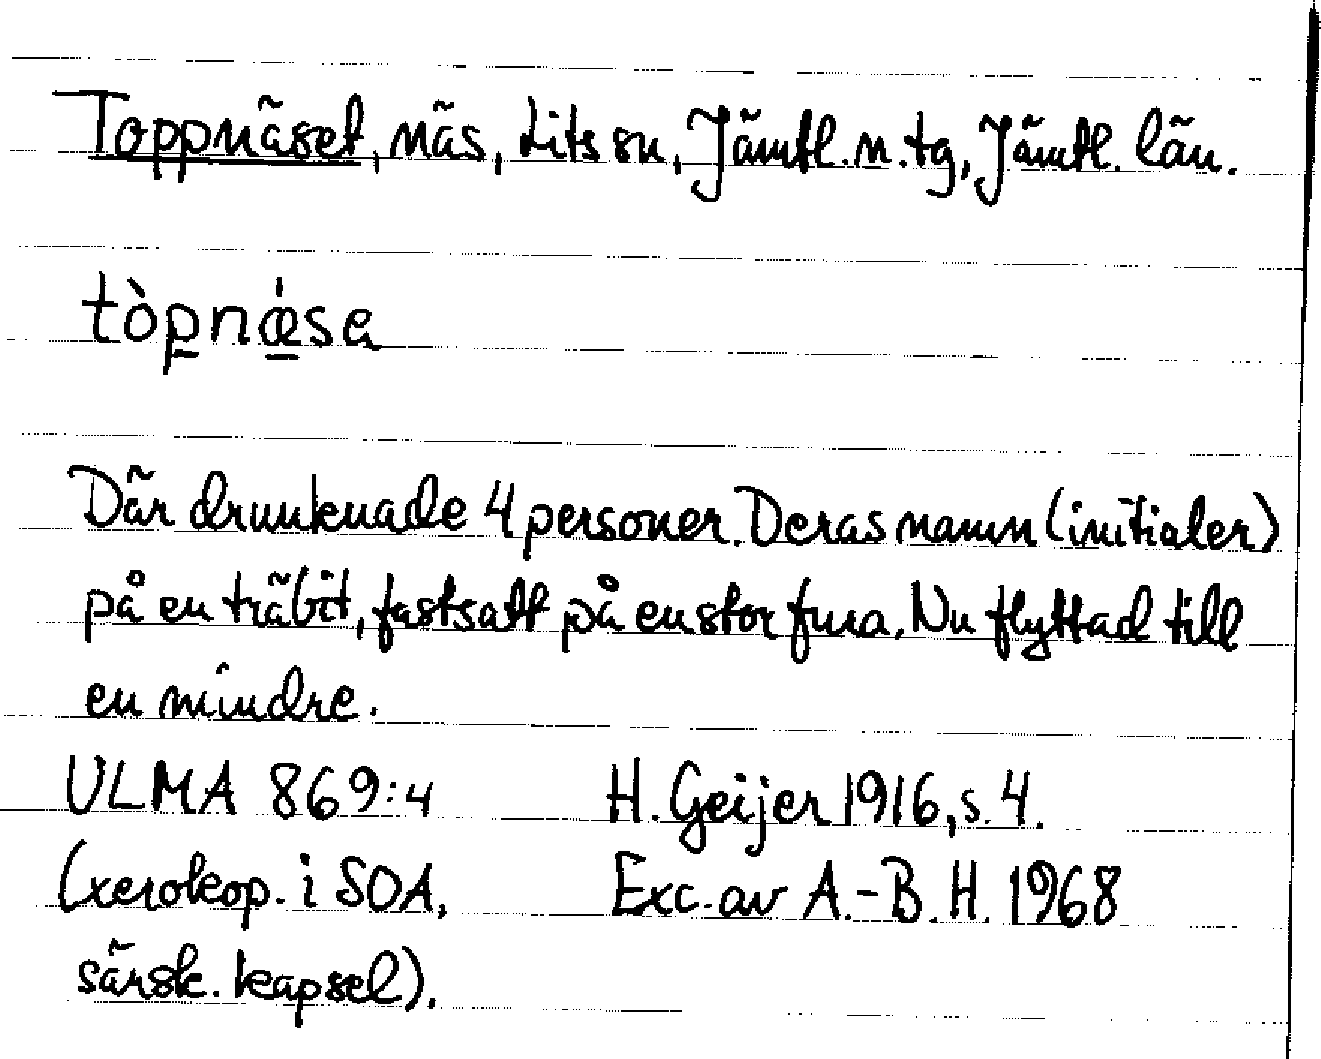 Toppnäset, näs, Lits sn, Jämtl. n. tg, Jämtl. län.
tòpnǽsa
Där drunknade 4 personer. Deras namn (initialer)
på en träbit, fastsatt på en stor fura. Nu flyttad till
en mindre.
ULMA 869:4 H. Geijer 1916, s. 4.
(xerokop. i SOA, Exc. av A.-B. H. 1968
särsk. kapsel).